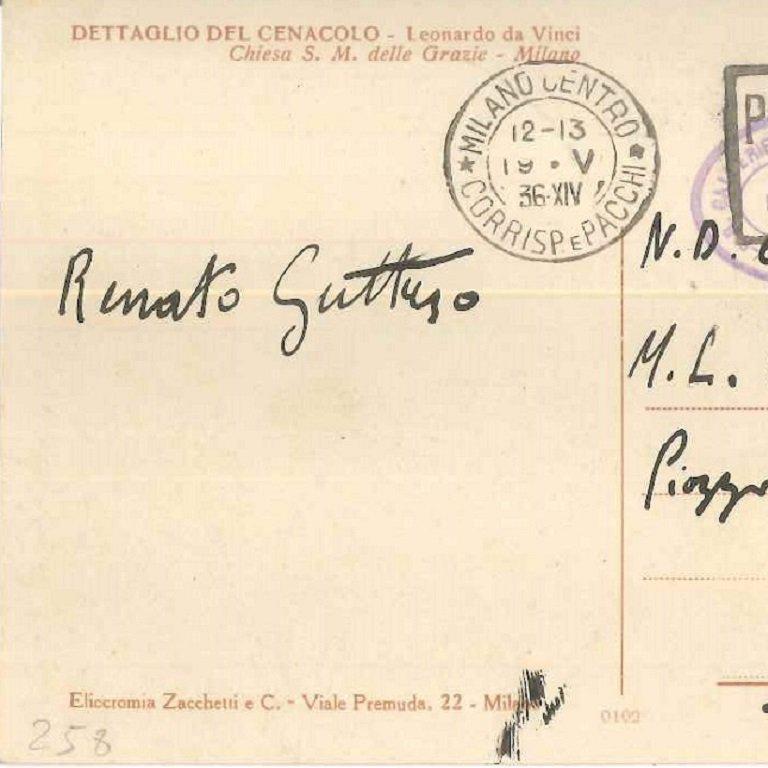 DETTAGLIO DEL CENACOLO - Leonardo da Vinci
Chiesa S. M. delle Grazie - Milano
MILANO CENTRO
12-13
19 · V
36·XIV
CORRISP. E PACCHI
Renato Guttuso
N. D.
M. L.
Piazza
Eliocromia Zacchetti e C. - Viale Premuda, 22 - Milano
0102
258